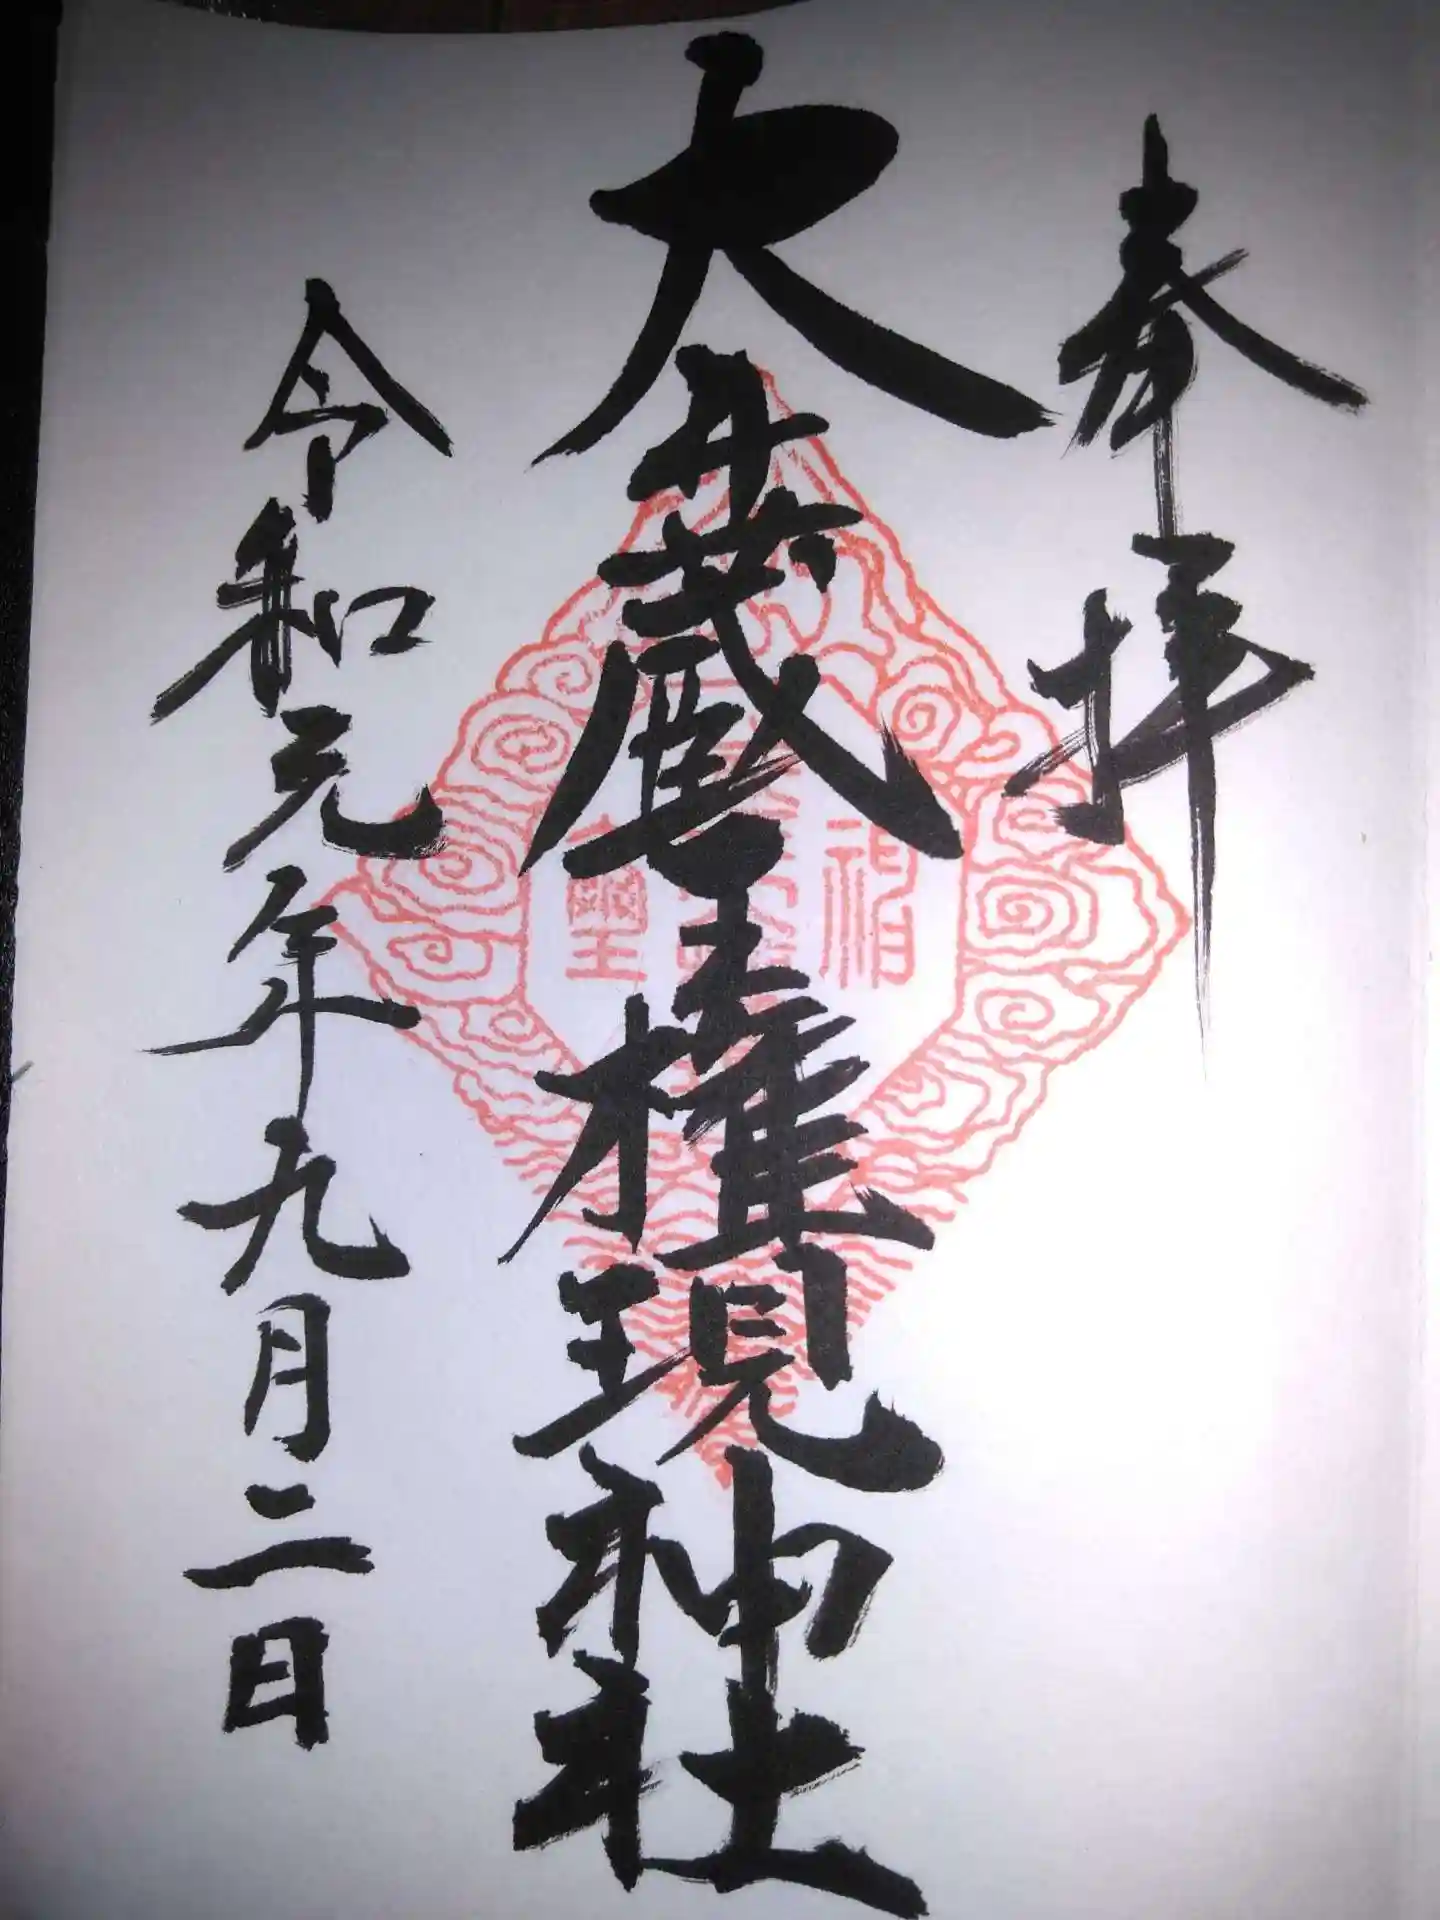 奉拝
大井蔵王権現神社
令和元年九月二日